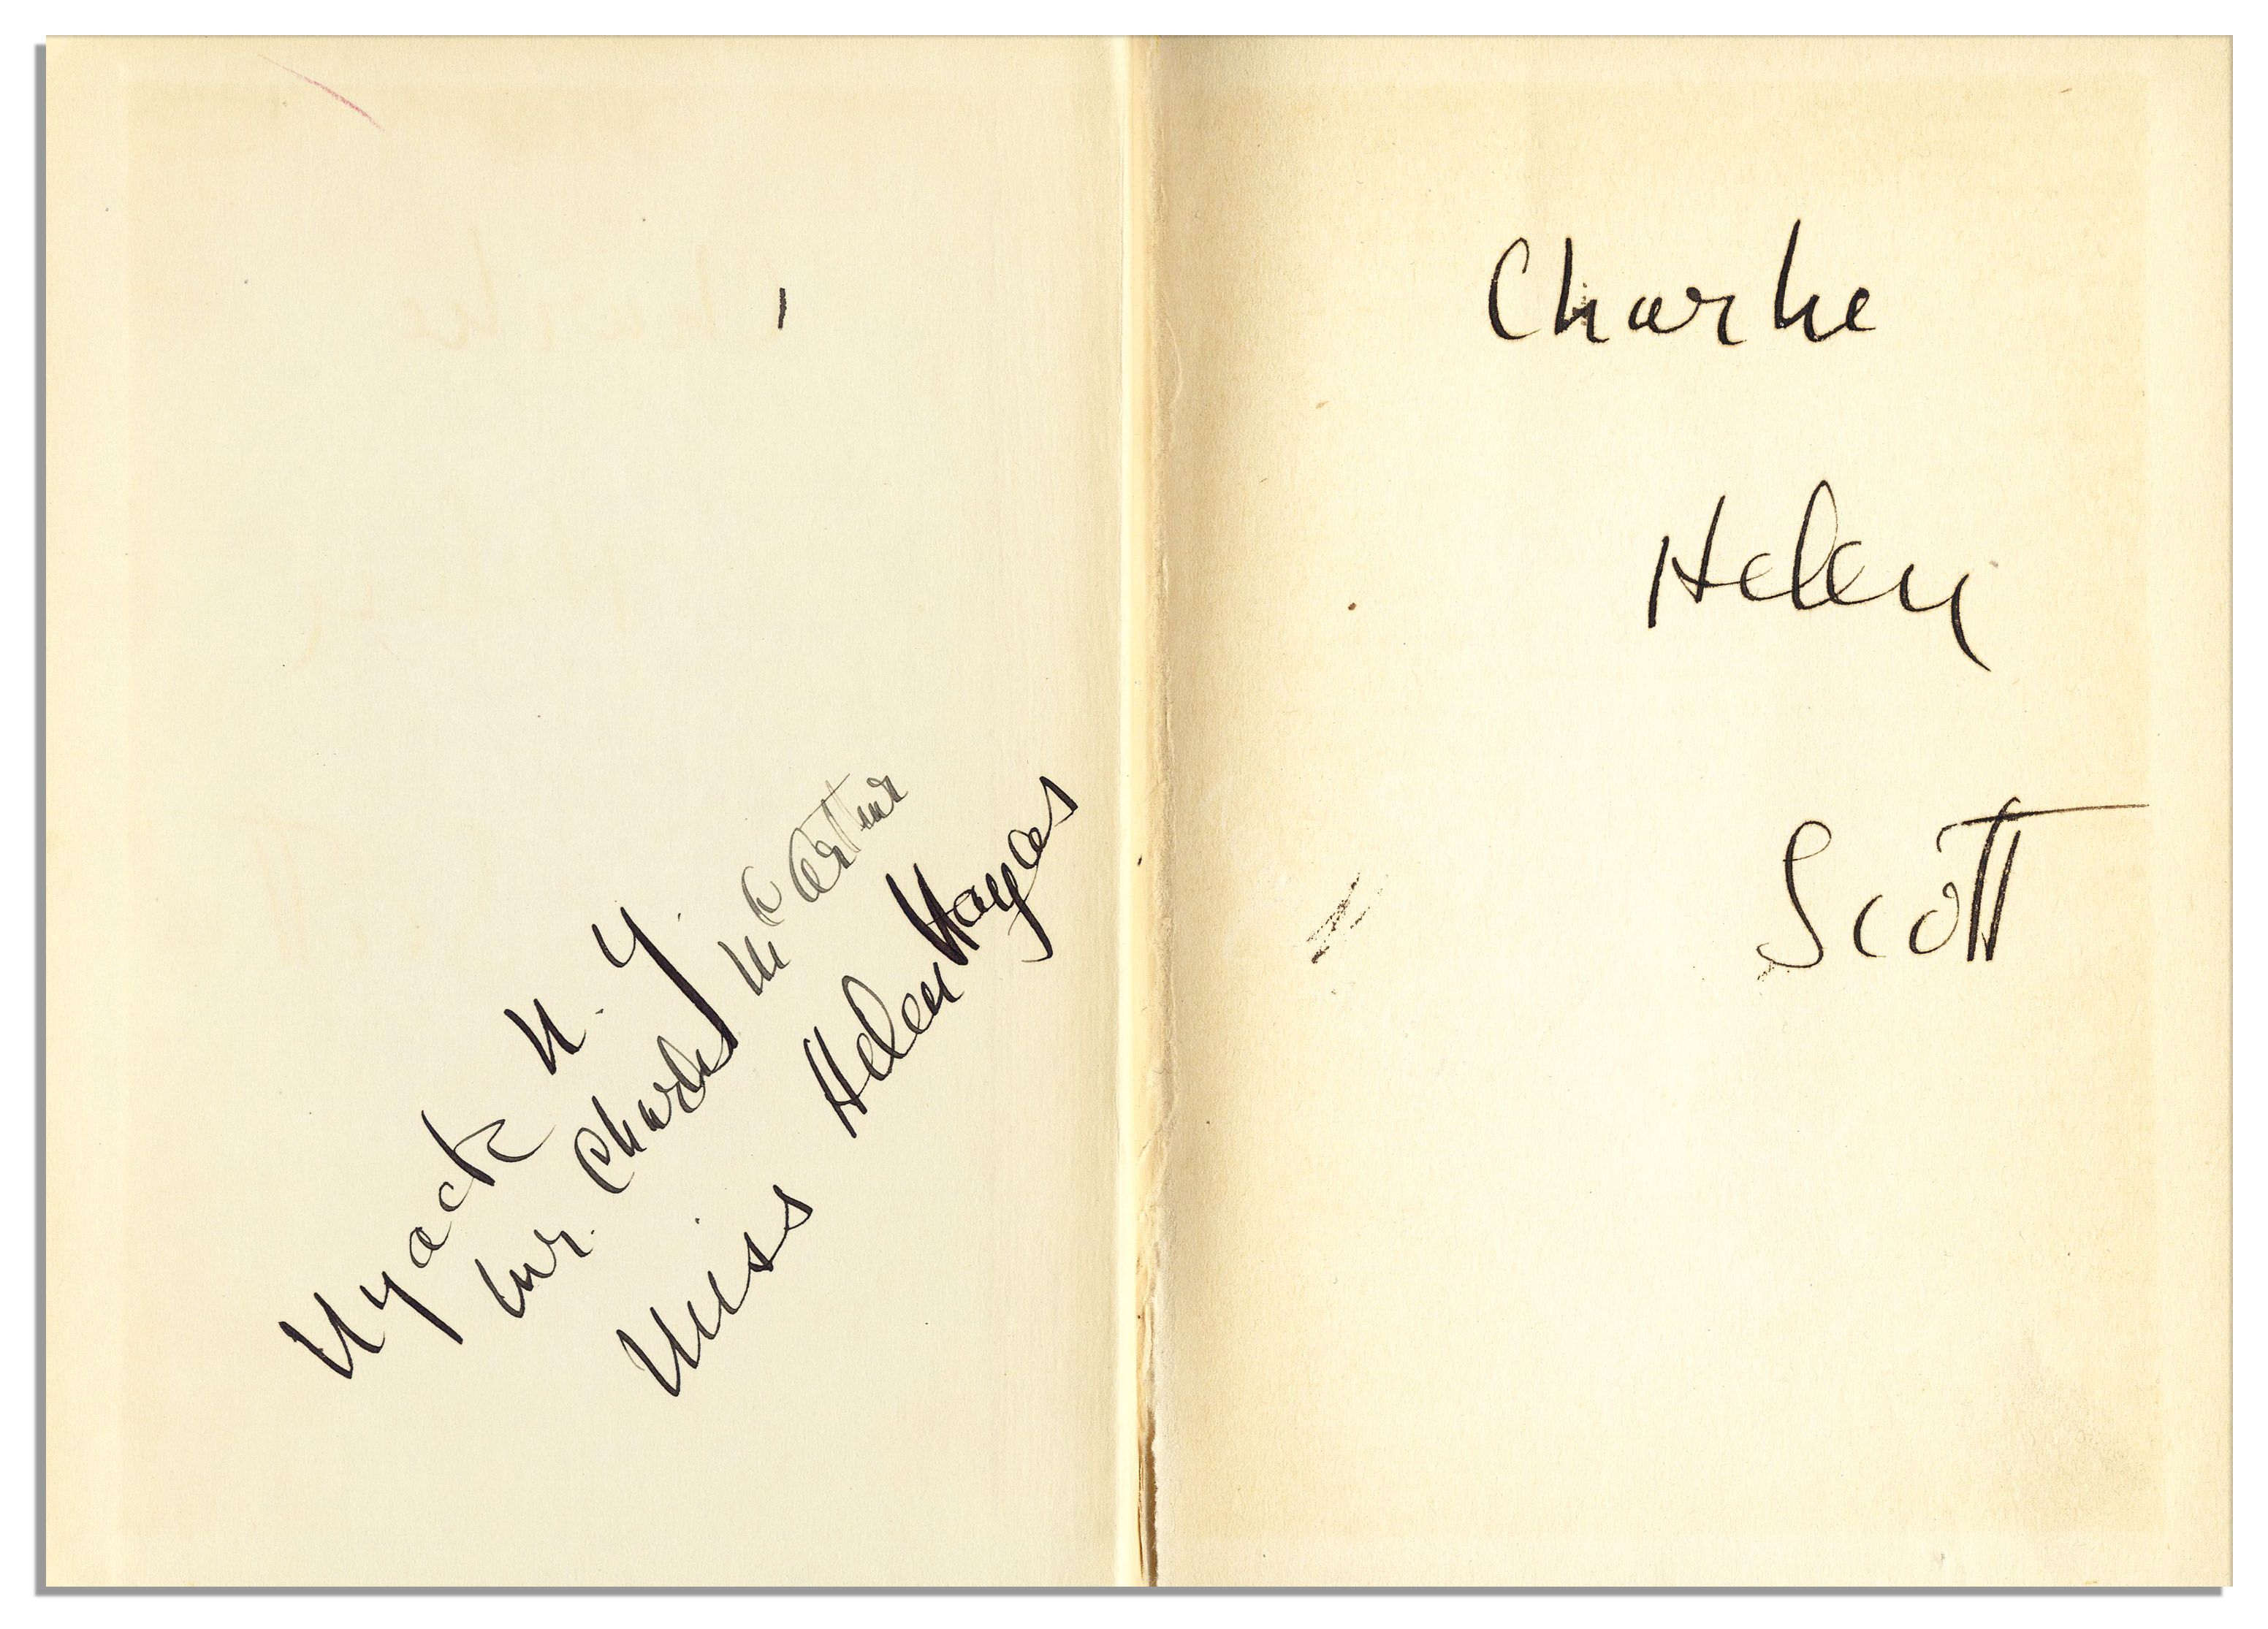 Nyack N. Y.
Mr. Charles McArthur
Miss Helen Hayes
Charlie
Helen
Scott